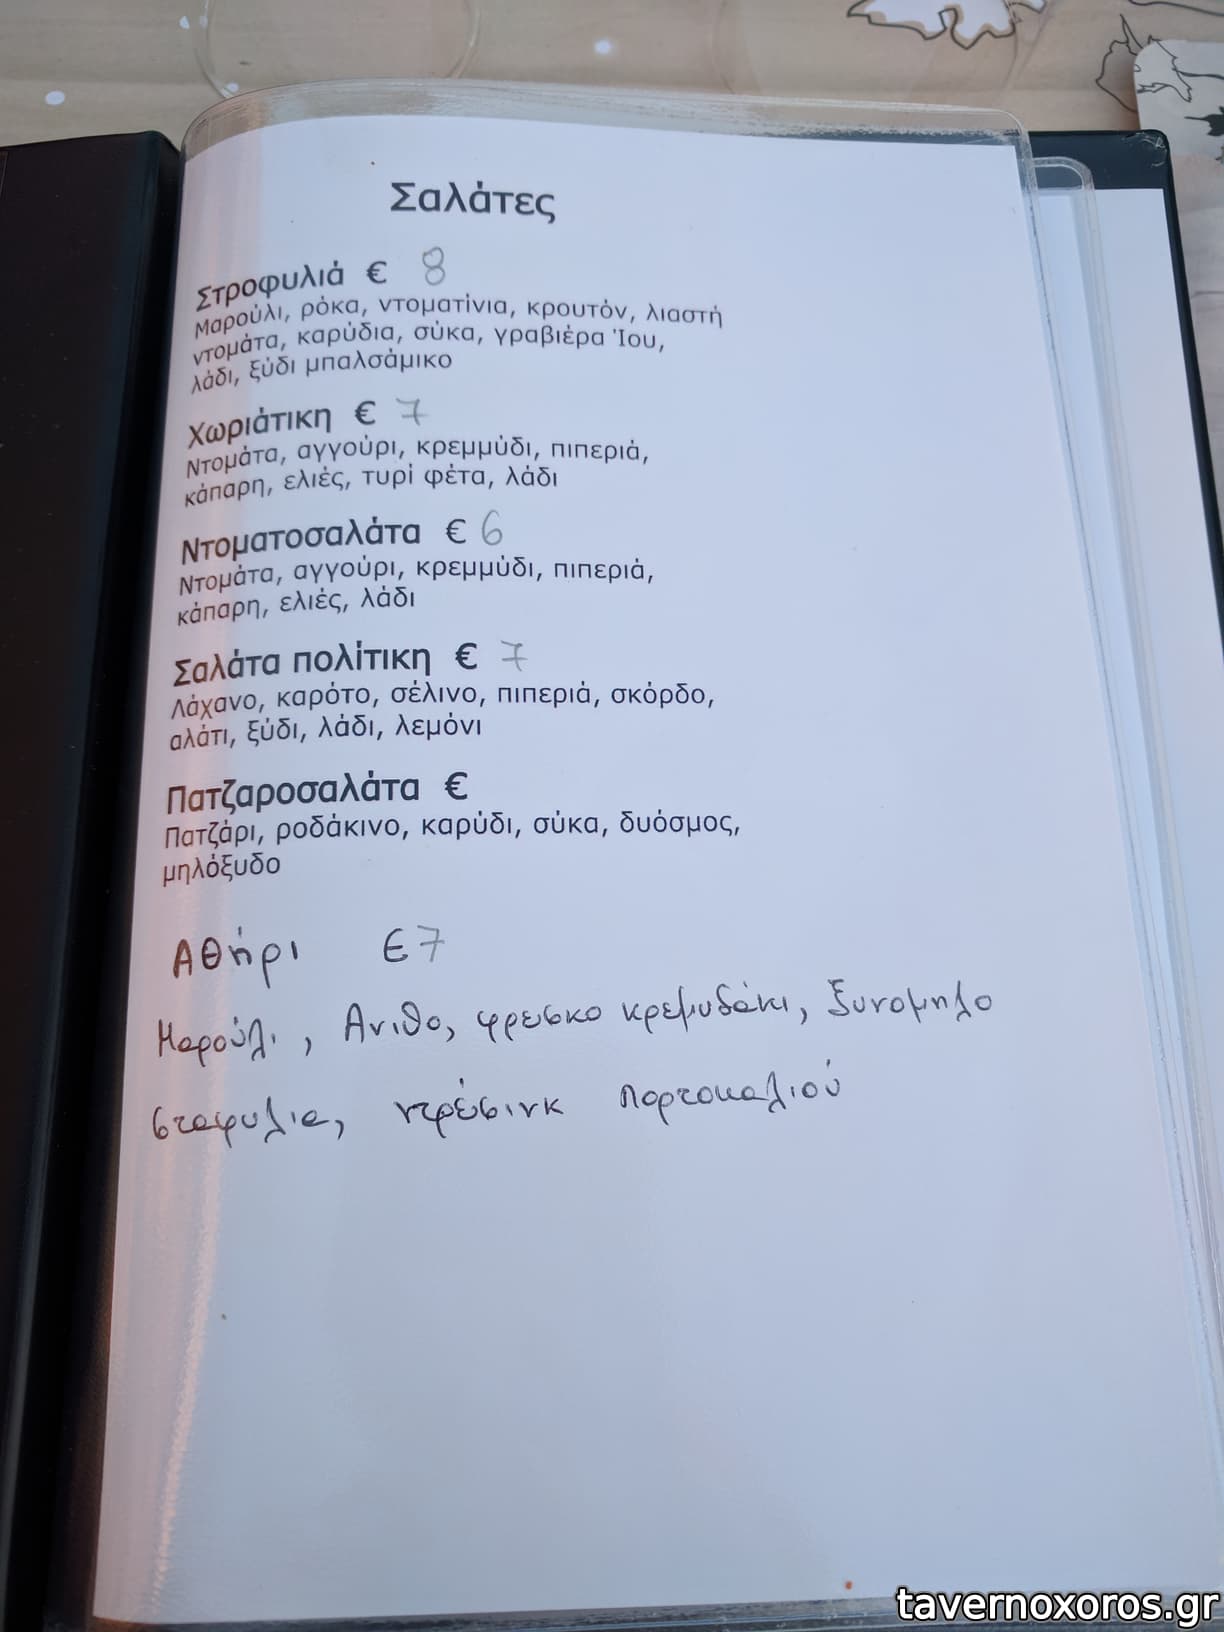 Σαλάτες
Στροφυλιά € 8
Μαρούλι, ρόκα, ντοματίνια, κρουτόν, λιαστή
ντομάτα, καρύδια, σύκα, γραβιέρα Ίου,
λάδι, ξύδι μπαλσάμικο
Χωριάτικη € 7
Ντομάτα, αγγούρι, κρεμμύδι, πιπεριά,
κάπαρη, ελιές, τυρί φέτα, λάδι
Ντοματοσαλάτα € 6
Ντομάτα, αγγούρι, κρεμμύδι, πιπεριά,
κάπαρη, ελιές, λάδι
Σαλάτα πολίτικη € 7
Λάχανο, καρότο, σέλινο, πιπεριά, σκόρδο,
αλάτι, ξύδι, λάδι, λεμόνι
Πατζαροσαλάτα €
Πατζάρι, ροδάκινο, καρύδι, σύκα, δυόσμος,
μηλόξυδο
Αθήρι €7
Μαρούλι, Ανιθο, φρεσκο κρεμυδάκι, ξυνομηλο
σταφυλια, ντρέσινκ πορτοκαλιού
tavernoxoros.gr